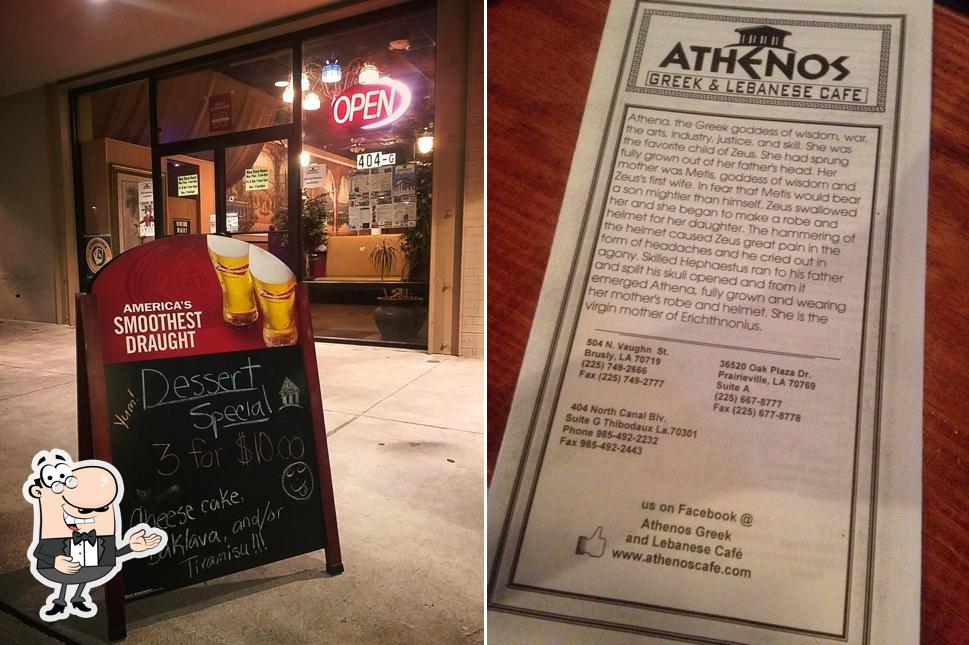 OPEN
404-G
Budweiser
AMERICA'S
SMOOTHEST
DRAUGHT
Yum!
Dessert
Special
3 for $10.00
Cheese cake,
Baklava, and/or
Tiramisu!!!
ATHENOS
GREEK & LEBANESE CAFE
Athena, the Greek goddess of wisdom, war,
the arts, industry, justice, and skill. She was
the favorite child of Zeus. She had sprung
fully grown out of her father's head. Her
mother was Metis, goddess of wisdom and
Zeus's first wife. In fear that Metis would bear
a son mightier than himself, Zeus swallowed
her and she began to make a robe and
helmet for her daughter. The hammering of
the helmet caused Zeus great pain in the
form of headaches and he cried out in
agony. Skilled Hephaestus ran to his father
and split his skull opened and from it
emerged Athena, fully grown and wearing
her mother's robe and helmet. She is the
virgin mother of Erichthnonius.
504 N. Vaughn St.
Brusly, LA 70719
(225) 749-2666
Fax (225) 749-2777
36520 Oak Plaza Dr.
Prairieville, LA 70769
Suite A
(225) 667-8777
Fax (225) 677-8778
404 North Canal Blv.
Suite G Thibodaux La.70301
Phone 985-492-2232
Fax 985-492-2443
us on Facebook @
Athenos Greek
and Lebanese Café
www.athenoscafe.com